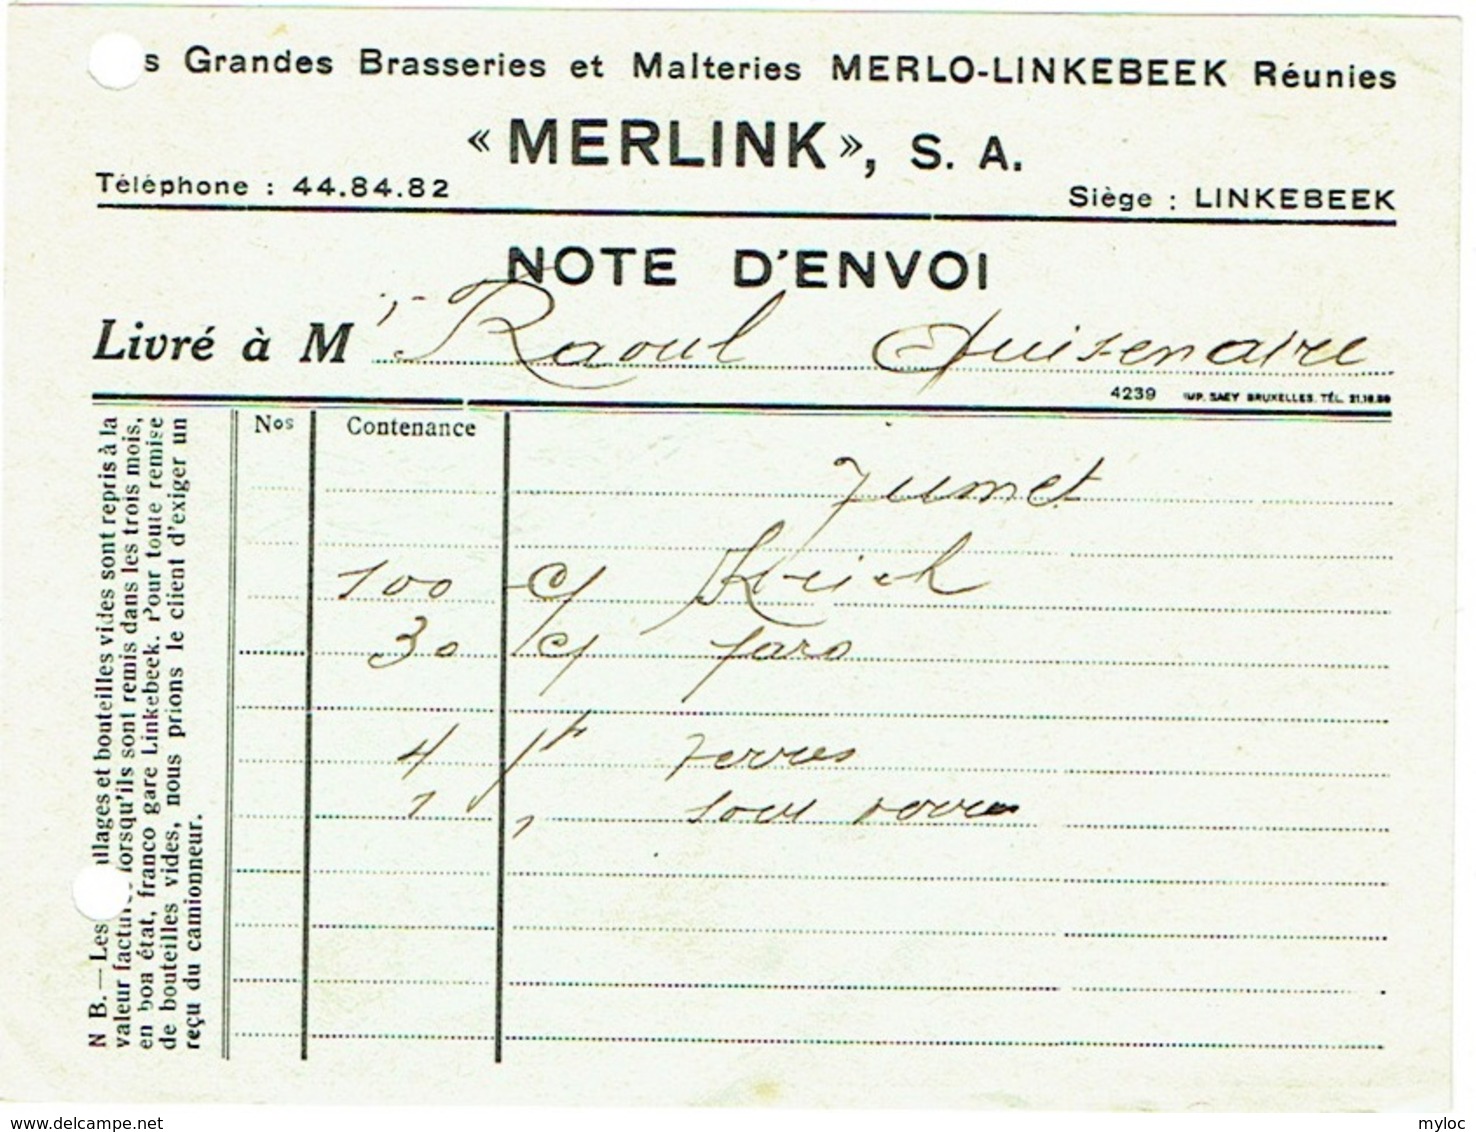 s Grandes Brasseries et Malteries MERLO-LINKEBEEK Réunies
« MERLINK », S. A.
Téléphone : 44.84.82
Siège : LINKEBEEK
NOTE D'ENVOI
Livré à M Raoul Cuisenaire
4239 IMP. SAEY BRUXELLES. TÉL. 21.18.59
Nos Contenance
Jumet
100 c/ Kriek
30 c/ faro
4 verres
1 "
N B. — Les llages et bouteilles vides sont repris à la
valeur factur lorsqu'ils sont remis dans les trois mois,
en bon état, franco gare Linkebeek. Pour toute remise
de bouteilles vides, nous prions le client d'exiger un
reçu du camionneur.
delcampe.net
myloc